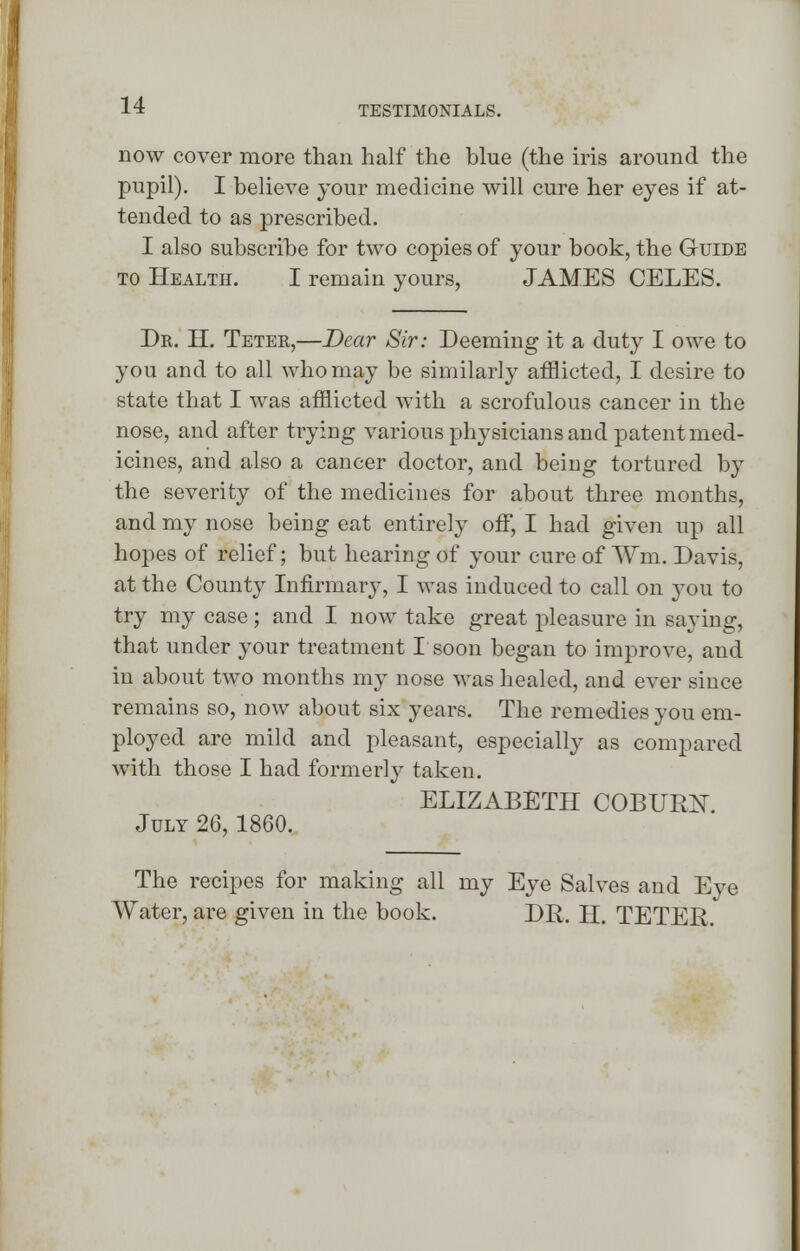 14
TESTIMONIALS.
now cover more than half the blue (the iris around the
pupil). I believe your medicine will cure her eyes if at-
tended to as prescribed.
I also subscribe for two copies of your book, the Guide
to Health. I remain yours, JAMES CELES.
Dr. H. Teter,—Dear Sir: Deeming it a duty I owe to
you and to all who may be similarly afflicted, I desire to
state that I was afflicted with a scrofulous cancer in the
nose, and after trying various physicians and patent med-
icines, and also a cancer doctor, and being tortured by
the severity of the medicines for about three months,
and my nose being eat entirely off, I had given up all
hopes of relief; but hearing of your cure of Wm. Davis,
at the County Infirmary, I was induced to call on you to
try my case; and I now take great pleasure in saying,
that under your treatment I soon began to improve, and
in about two months my nose was healed, and ever since
remains so, now about six years. The remedies you em-
ployed are mild and pleasant, especially as compared
with those I had formerly taken.
ELIZABETH COBURN.
July 26, 1860.
The recipes for making all my Eye Salves and Eye
Water, are given in the book. DR. H. TETER.